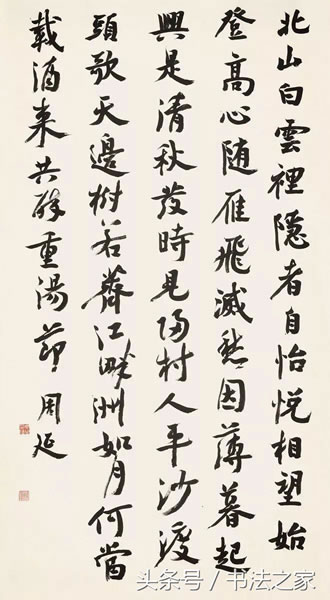 北山白雲裡隱者自怡悅相望始
登高心随雁飛滅愁因薄暮起
興是清秋發時見歸村人平沙渡
頭歇天邊樹若薺江畔洲如月何當
載酒来共醉重陽節 周延
头条号 / 书法之家